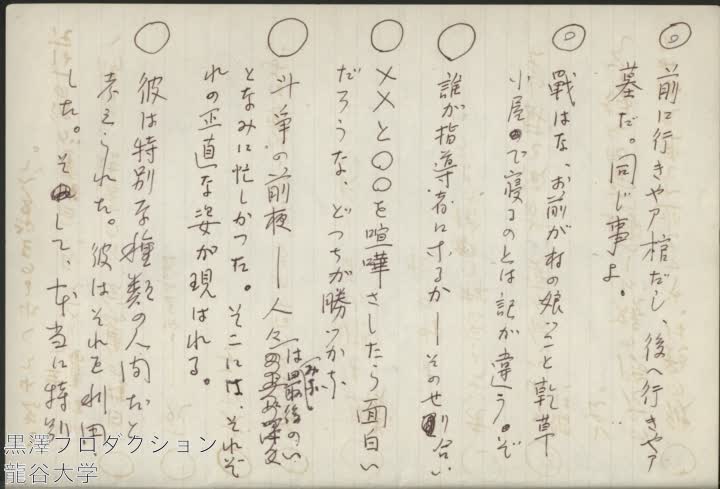 ◎ 前に行きやア棺だし、後へ行きやア
墓だ。同じ事よ。
◎ 戰はな、お前が村の娘っこと乾草
小屋で寝るのとは訳が違うぞ
○ 誰が指導者になるか―そのせり合い
○ ××と○○を喧嘩さしたら面白い
だろうな、どっちが勝つか
○ 斗争の前夜―人々は最後のい
となみに忙しかった。そこには、それぞ
れの正直な姿が現はれる。
○ 彼は特別な種類の人間だと
考えられた。彼はそれを利用
した。そして、本当に特別
黒澤プロダクション
龍谷大学